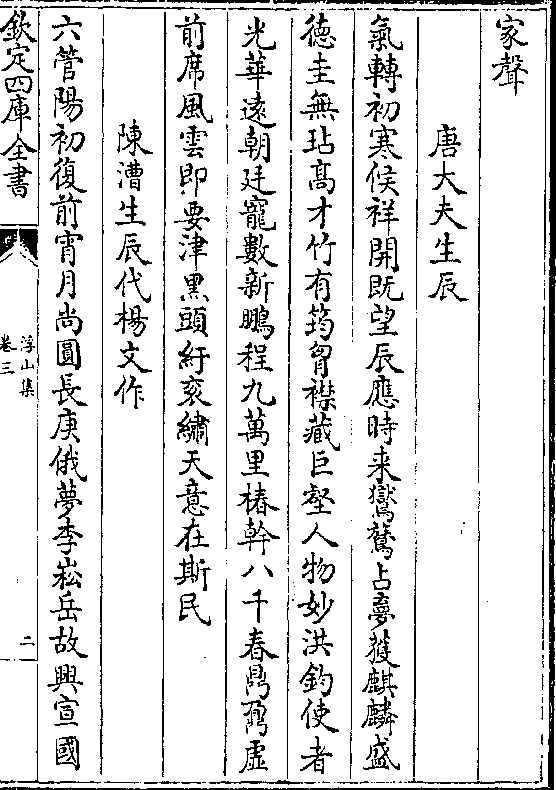 家聲
唐大夫生辰
氣轉初寒候祥開既望辰應時来鸑鷟占夢獲麒麟盛
徳圭無玷髙才竹有筠胷襟藏巨壑人物妙洪鈞使者
光華逺朝廷寵數新鵬程九萬里椿幹八千春鼎鼐虚
前席風雲即要津黒頭紆衮繡天意在斯民
陳漕生辰代楊文作
六管陽初復前宵月尚圓長庚俄夢李崧岳故興宣國
欽定四庫全書
浮山集
卷三
二